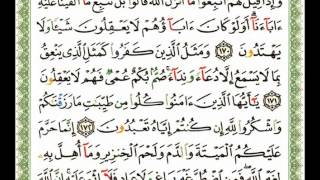 وَإِذَا قِيلَ لَهُمُ اتَّبِعُوا مَا أَنزَلَ اللَّهُ قَالُوا بَلْ نَتَّبِعُ مَا أَلْفَيْنَا عَلَيْهِ
ءَابَآءَنَآ أَوَلَوْ كَانَ ءَابَآؤُهُمْ لَا يَعْقِلُونَ شَيْـًٔا وَلَا
يَهْتَدُونَ ١٧٠ وَمَثَلُ الَّذِينَ كَفَرُوا كَمَثَلِ الَّذِي يَنْعِقُ
بِمَا لَا يَسْمَعُ إِلَّا دُعَآءً وَنِدَآءً صُمٌّ بُكْمٌ عُمْيٌ فَهُمْ لَا يَعْقِلُونَ
١٧١ يَٰٓأَيُّهَا الَّذِينَ ءَامَنُوا كُلُوا مِن طَيِّبَٰتِ مَا رَزَقْنَٰكُمْ
وَاشْكُرُوا لِلَّهِ إِن كُنتُمْ إِيَّاهُ تَعْبُدُونَ ١٧٢ إِنَّمَا حَرَّمَ
عَلَيْكُمُ الْمَيْتَةَ وَالدَّمَ وَلَحْمَ الْخِنزِيرِ وَمَآ أُهِلَّ بِهِ
لِغَيْرِ اللَّهِ فَمَنِ اضْطُرَّ غَيْرَ بَاغٍ وَلَا عَادٍ فَلَآ إِثْمَ عَلَيْهِ إِنَّ اللَّهَ